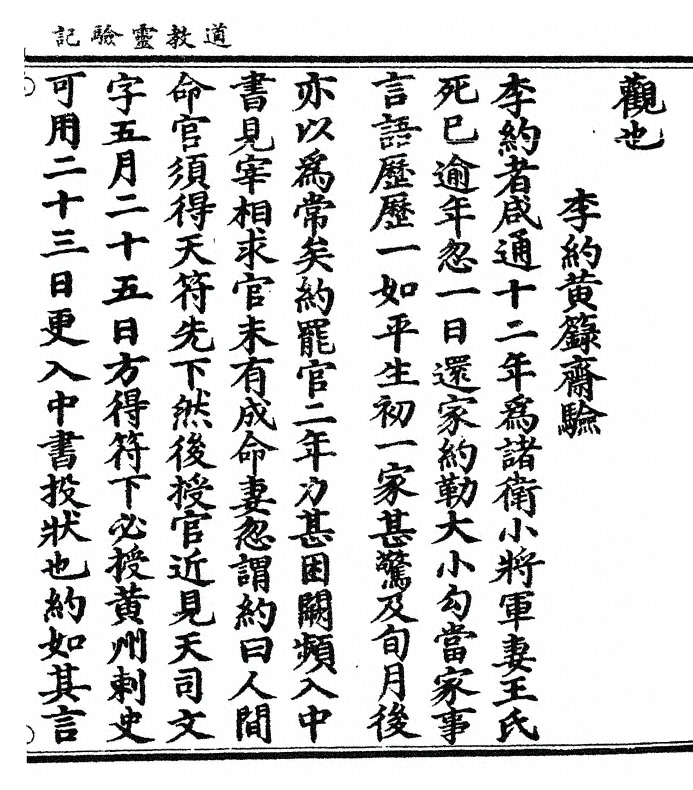 道教靈驗記
觀也
李約黃籙齋驗
李約者咸通十二年爲諸衛小將軍妻王氏
死巳逾年忽一日還家約勒大小勾當家事
言語歷歷一如平生初一家甚驚及旬月後
亦以爲常矣約罷官二年力甚困闕頻入中
書見宰相求官未有成命妻忽謂約曰人間
命官須得天符先下然後授官近見天司文
字五月二十五日方得符下必授黃州刺史
可用二十三日更入中書投狀也約如其言